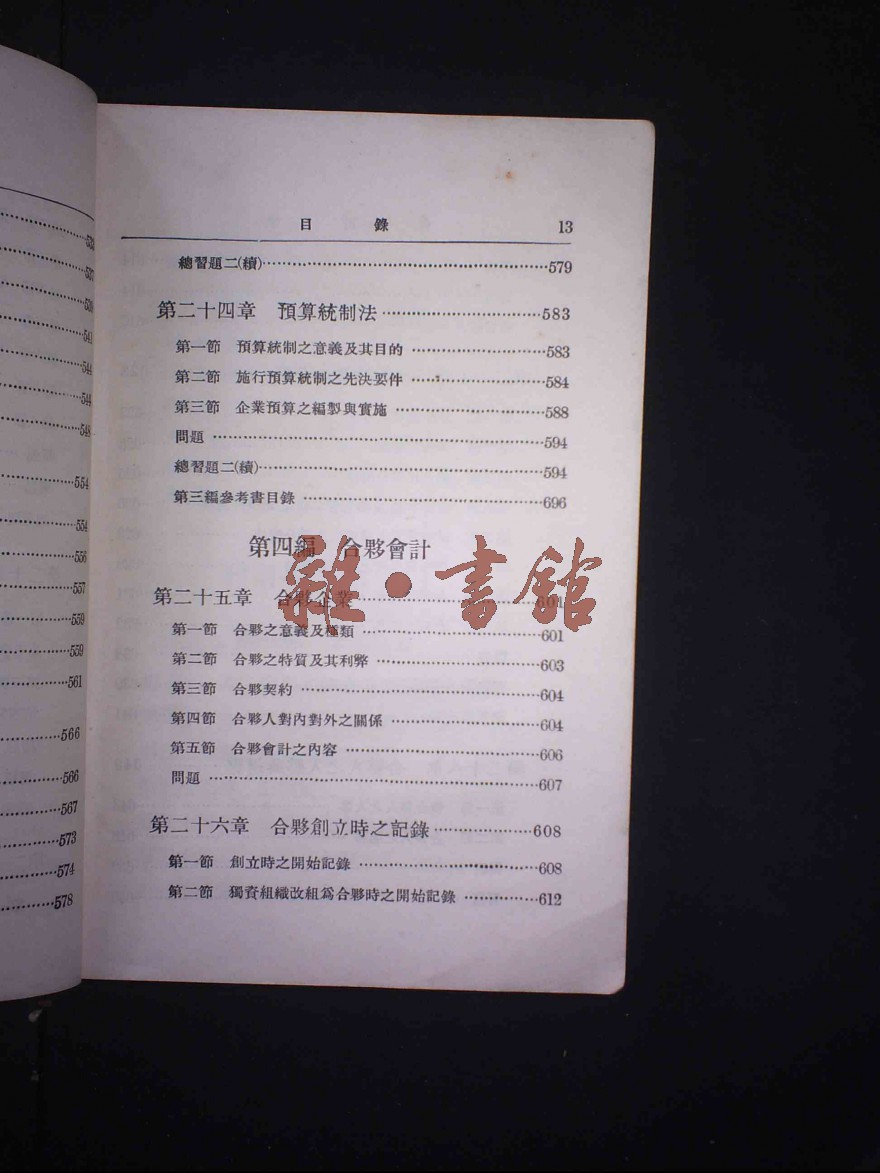 532
537
539
541
544
544
548
554
554
556
557
559
559
561
566
566
567
573
574
578
目 錄 13
總習題二(續)⋯⋯579
第二十四章 預算統制法⋯⋯583
第一節 預算統制之意義及其目的⋯⋯583
第二節 施行預算統制之先決要件⋯⋯584
第三節 企業預算之編製與實施⋯⋯588
問題⋯⋯594
總習題二(續)⋯⋯594
第三編參考書目錄⋯⋯696
第四編 合夥會計
第二十五章 合夥企業⋯⋯601
第一節 合夥之意義及種類⋯⋯601
第二節 合夥之特質及其利弊⋯⋯603
第三節 合夥契約⋯⋯604
第四節 合夥人對內對外之關係⋯⋯604
第五節 合夥會計之內容⋯⋯606
問題⋯⋯607
第二十六章 合夥創立時之記錄⋯⋯608
第一節 創立時之開始記錄⋯⋯608
第二節 獨資組織改組爲合夥時之開始記錄⋯⋯612
雜·書館